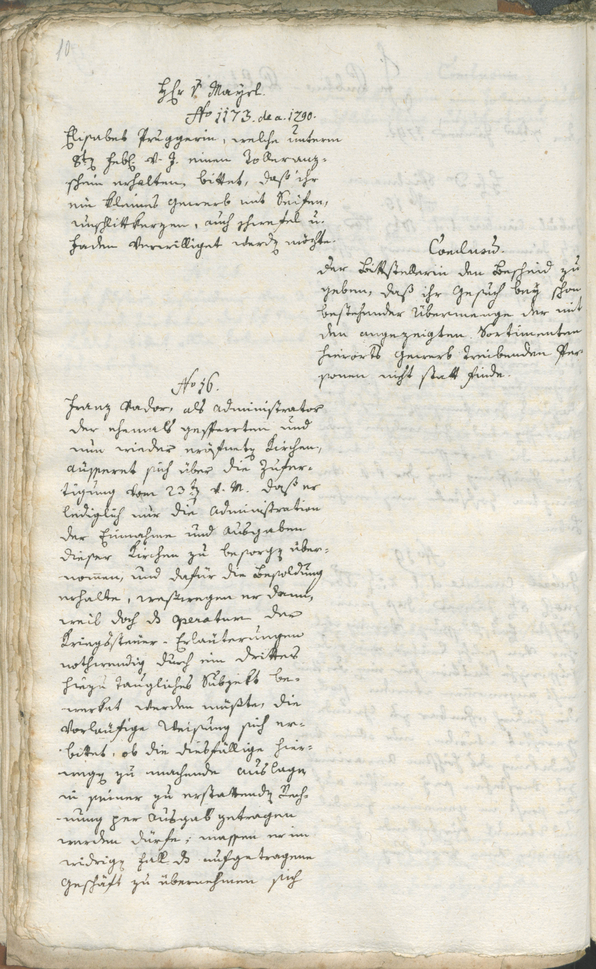 10.
H[err] v. Mayrl.
No 1173. de a. 1790.
Elisabet Pruggerin, welche unterm
8t Febr. v. J. einen Tolleranz-
schein erhalten, bittet, daß ihr
ein kleines Gewerb mit Seifen,
unschlittkerzen, auch schwefel u.
Faden verwilliget werdn möchte.
Conclusum.
Der Bittstellerin den Bescheid zu
geben, daß ihr Gesuch bey schon
bestehender Übermenge der mit
den angezeigten Sortimenten
hierorts Gewerb treibenden Per
sonen nicht statt finde.
No 16.
Franz Vador, als Administrator
der ehemals gesperrten und
nun wieder eröfnetn Kirchen,
äusseret sich über die Zufer-
tigung vom 23tn v. M. daß er
lediglich nur die Administration
der Einnahme und Ausgaben
dieser Kirchen zu besorgn über-
nommen, und dafür die Besoldung
erhalte, weßwegen er dann,
weil doch ds Operatum der
Kriegssteuer-Erläuterungen
nothwendig durch ein drittes
hiezu taugliches Subjekt be-
werket werden müßte, die
vorläufige Weisung sich er-
bittet, ob die diesfällige hier-
wegn zu machende Auslagn
in seiner zu erstattendn Rech-
nung per Ausgab getragen
werden dürfe; massen er im
widrign Fall ds aufgetragene
Geschäft zu übernehmen sich